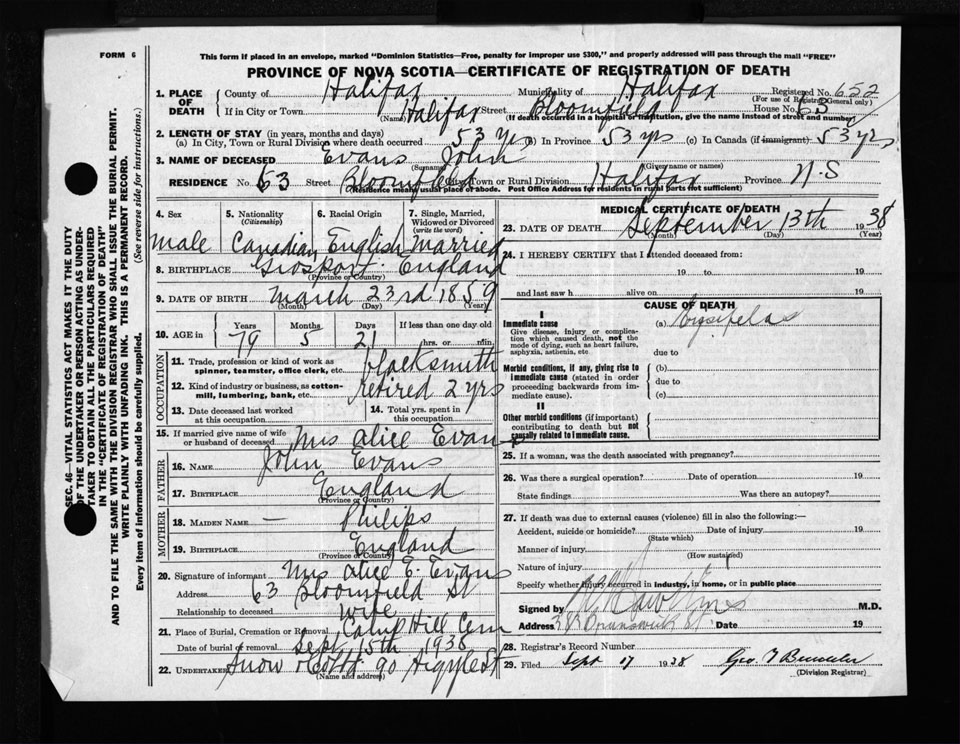 FORM 6
This form if placed in an envelope, marked "Dominion Statistics—Free, penalty for improper use $300," and properly addressed will pass through the mail "FREE"
PROVINCE OF NOVA SCOTIA—CERTIFICATE OF REGISTRATION OF DEATH
SEC. 46—VITAL STATISTICS ACT MAKES IT THE DUTY
OF THE UNDERTAKER OR PERSON ACTING AS UNDER-
TAKER TO OBTAIN ALL THE PARTICULARS REQUIRED
IN THE "CERTIFICATE OF REGISTRATION OF DEATH"
AND TO FILE THE SAME WITH THE DIVISION REGISTRAR WHO SHALL ISSUE THE BURIAL PERMIT.
WRITE PLAINLY WITH UNFADING INK. THIS IS A PERMANENT RECORD.
Every item of information should be carefully supplied. (See reverse side for instructions.)
1. PLACE OF DEATH County of Halifax Municipality of Halifax Registered No. 652
(For use of Registrar General only)
If in City or Town Halifax Street Bloomfield House No. 63
(Name) (If death occurred in a hospital or institution, give the name instead of street and number)
2. LENGTH OF STAY (in years, months and days)
(a) In City, Town or Rural Division where death occurred 53 yrs (b) In Province 53 yrs (c) In Canada (if immigrant) 53 yrs
3. NAME OF DECEASED Evans John
(Surname) (Given name or names)
RESIDENCE No. 63 Street Bloomfield City, Town or Rural Division Halifax Province N-S
(Residence means usual place of abode. Post Office Address for residents in rural parts not sufficient)
4. Sex 5. Nationality (Citizenship) 6. Racial Origin 7. Single, Married, Widowed or Divorced (write the word)
male Canadian English Married
8. BIRTHPLACE Gosport England
(Province or Country)
9. DATE OF BIRTH March 23rd 1859
(Month) (Day) (Year)
10. AGE in Years Months Days If less than one day old
79 5 21 hrs. or min.
OCCUPATION
11. Trade, profession or kind of work as spinner, teamster, office clerk, etc. blacksmith
12. Kind of industry or business, as cotton-mill, lumbering, bank, etc. retired 2 yrs
13. Date deceased last worked at this occupation 14. Total yrs. spent in this occupation
15. If married give name of wife or husband of deceased Mrs Alice Evans
FATHER
16. NAME John Evans
17. BIRTHPLACE England
(Province or Country)
MOTHER
18. MAIDEN NAME — Philips
19. BIRTHPLACE England
(Province or Country)
20. Signature of informant Mrs Alice E. Evans
Address 63 Bloomfield St
Relationship to deceased wife
21. Place of Burial, Cremation or Removal Camp Hill Cem
Date of burial or removal Sept 15th 1938
22. UNDERTAKER Snow & Co Ltd 90 Argyle St
(Name and address)
MEDICAL CERTIFICATE OF DEATH
23. DATE OF DEATH September 13th 1938
(Month) (Day) (Year)
24. I HEREBY CERTIFY that I attended deceased from:
19 to 19
and last saw h alive on 19
CAUSE OF DEATH
I
Immediate cause (a) Erysipelas
Give disease, injury or complication which caused death, not the mode of dying, such as heart failure, asphyxia, asthenia, etc.
due to
Morbid conditions, if any, giving rise to immediate cause (stated in order proceeding backwards from immediate cause).
(b)
due to
(c)
II
Other morbid conditions (if important) contributing to death but not causally related to immediate cause.
25. If a woman, was the death associated with pregnancy?
26. Was there a surgical operation? Date of operation 19
State findings Was there an autopsy?
27. If death was due to external causes (violence) fill in also the following:—
Accident, suicide or homicide? Date of injury 19
(State which)
Manner of injury
(How sustained)
Nature of injury
Specify whether injury occurred in industry, in home, or in public place
Signed by M.D.
Address 38 Brunswick St Date 19
28. Registrar's Record Number
29. Filed Sept 17 1938 Geo. T
(Division Registrar)